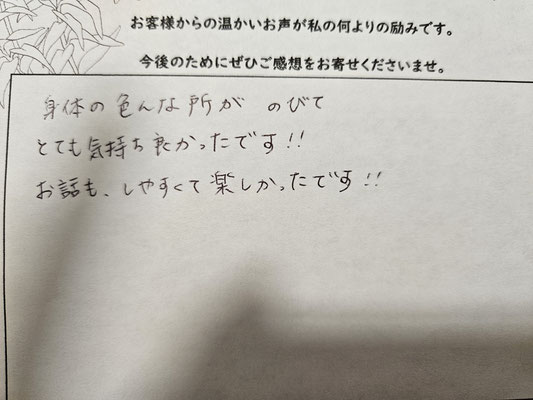 お客様からの温かいお声が私の何よりの励みです。
今後のためにぜひご感想をお寄せくださいませ。
身体の色んな所が のびて
とても気持ち良かったです!!
お話も、しやすくて楽しかったです!!